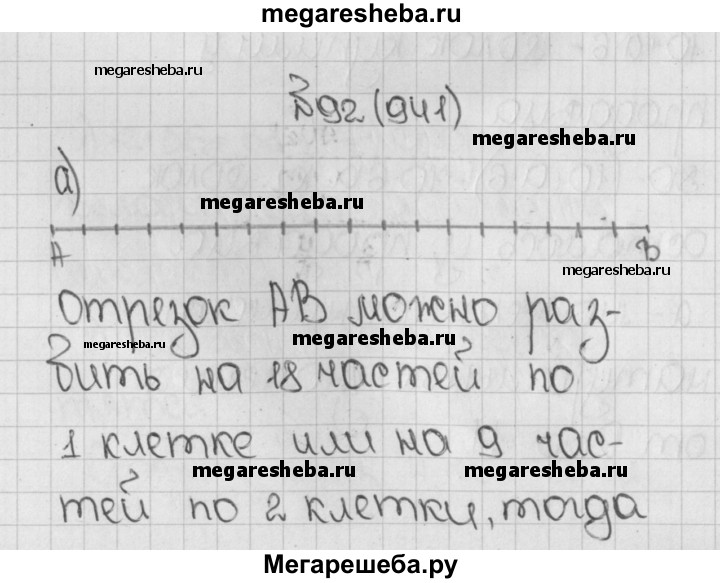 megaresheba.ru
megaresheba.ru
№92 (941)
megaresheba.ru
а)
megaresheba.ru
А В
megaresheba.ru
Отрезок АВ можно раз-
megaresheba.ru
megaresheba.ru
бить на 18 частей по
1 клетке или на 9 час-
megaresheba.ru megaresheba.ru
тей по 2 клетки, тогда
Мегарешеба.ру